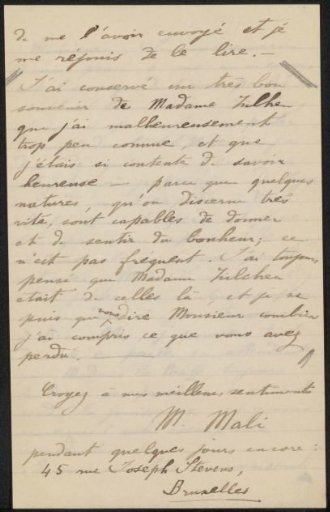 de me l'avoir envoyé et je
me réjouis de le lire. —
J'ai conservé un très bon
souvenir de Madame Zilcken
que j'ai malheureusement
trop peu connue, et que
j'étais si contente de savoir
heureuse —, parce que quelques
natures, qu'on discerne très
vite, sont capables de donner
et de sentir du bonheur; ce
n'est pas fréquent. J'ai toujours
pensé que Madame Zilcken
était de celles là et je ne
puis que vous dire Monsieur combien
j'ai compris ce que vous avez
perdu.
Croyez a mes meilleurs sentiments
M. Mali
pendant quelques jours encore:
45 rue Joseph Stevens,
Bruxelles